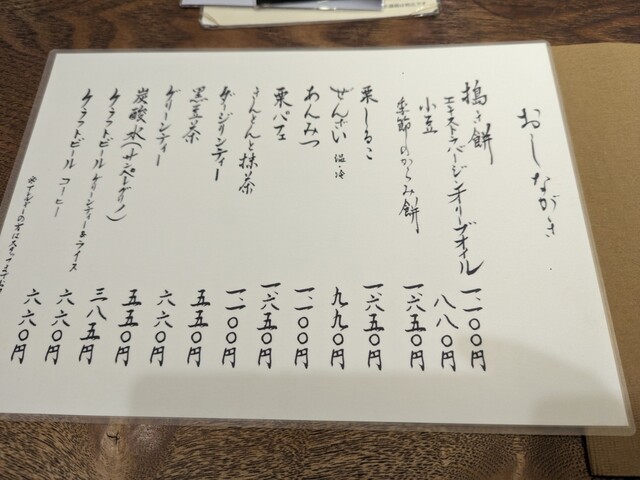 おしながき
搗き餅
エキストラバージンオリーブオイル 一、一〇〇円
小豆 八八〇円
季節のからみ餅 一、六五〇円
栗しるこ 一、六五〇円
ぜんざい 温・冷 九九〇円
あんみつ 一、一〇〇円
栗パフェ 一、六五〇円
きんとんと抹茶 一、一〇〇円
ダージリンティー 五五〇円
黒豆茶 六六〇円
グリーンティー 五五〇円
炭酸水(サンペレグリノ) 三八五円
クラフトビール グリーンティー&ライス 六六〇円
クラフトビール コーヒー 六六〇円
※アレルギーの方は